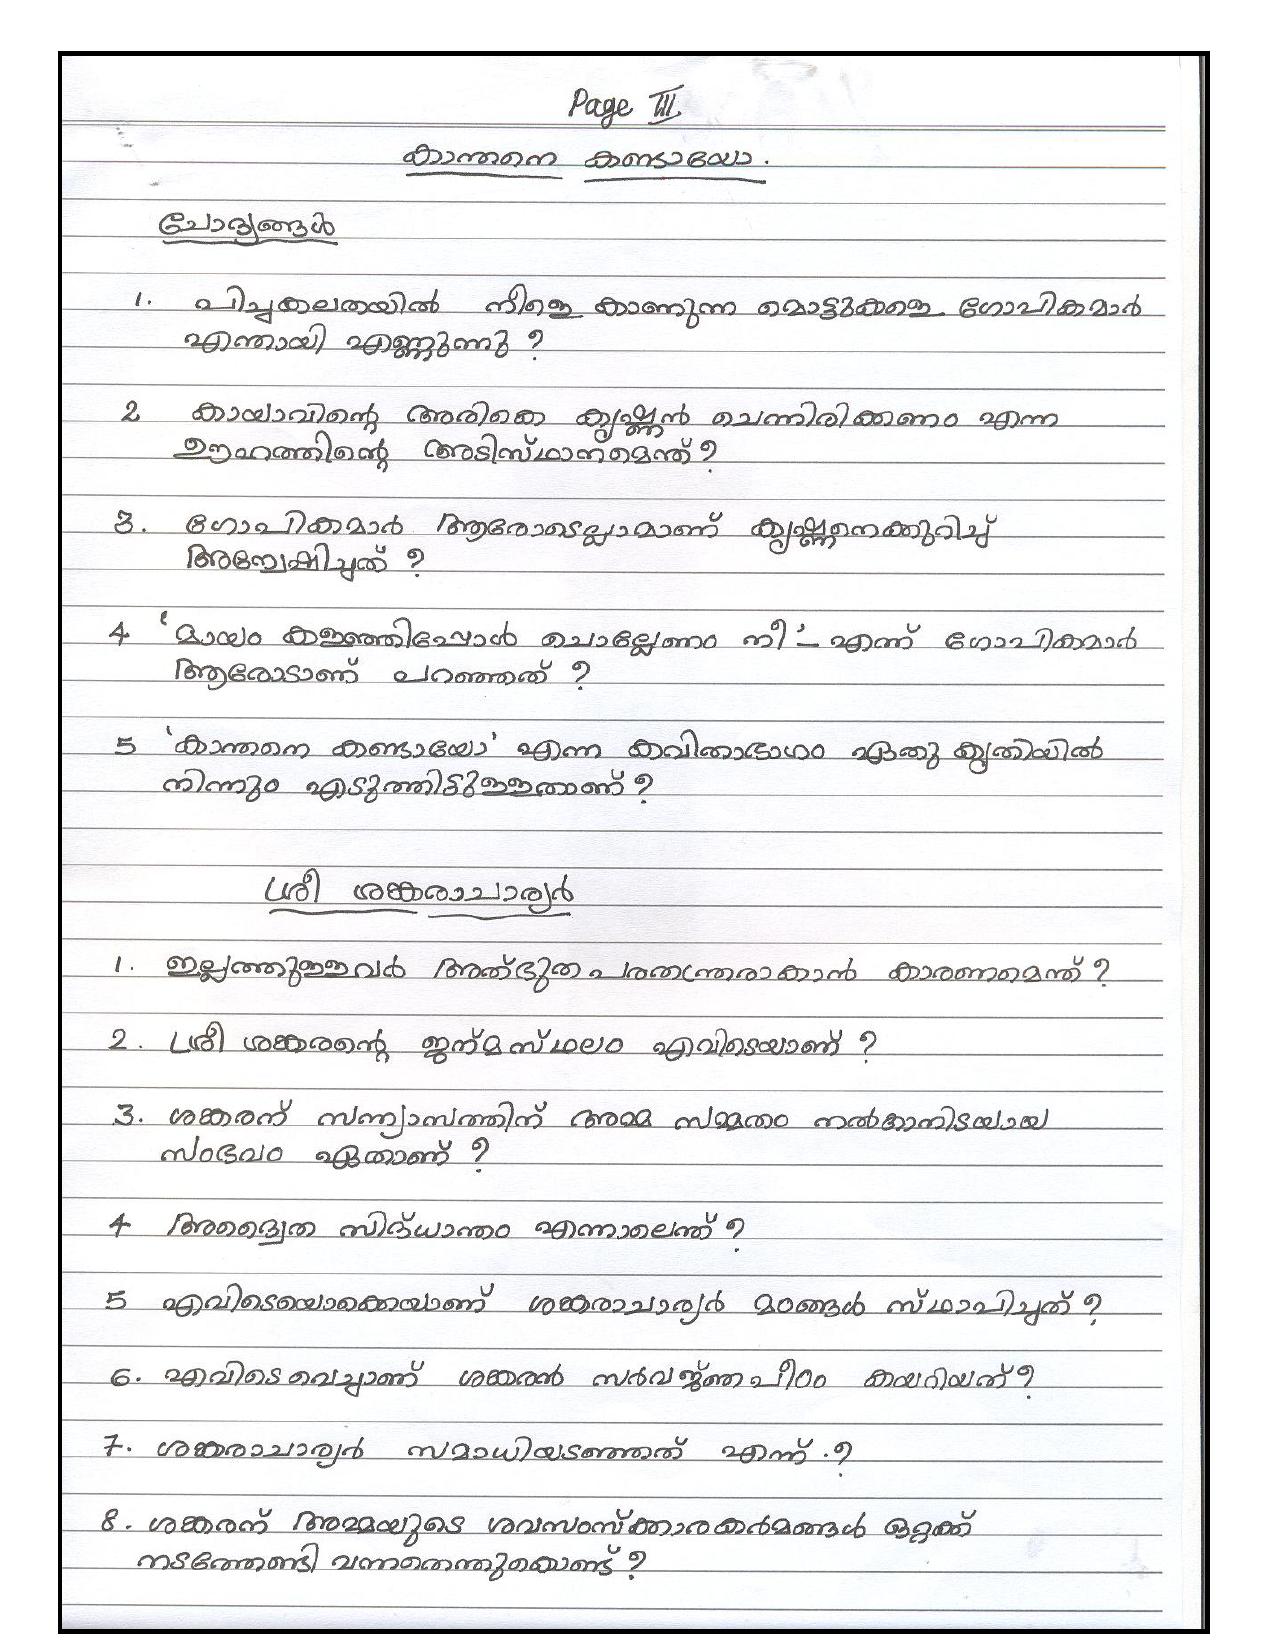 Page III
കാന്തനെ കണ്ടായോ.
ചോദ്യങ്ങൾ
1. പിച്ചകലതയിൽ നീളെ കാണുന്ന മൊട്ടുകളെ ഗോപികമാർ
എന്തായി എണ്ണുന്നു ?
2 കായാവിന്റെ അരികെ കൃഷ്ണൻ ചെന്നിരിക്കണം എന്ന
ഊഹത്തിന്റെ അടിസ്ഥാനമെന്ത് ?
3. ഗോപികമാർ ആരോടെല്ലാമാണ് കൃഷ്ണനെക്കുറിച്ച്
അന്വേഷിച്ചത് ?
4 'മായം കളഞ്ഞിപ്പോൾ ചൊല്ലേണം നീ' - എന്ന് ഗോപികമാർ
ആരോടാണ് പറഞ്ഞത് ?
5 'കാന്തനെ കണ്ടായോ' എന്ന കവിതാഭാഗം ഏതു കൃതിയിൽ
നിന്നും എടുത്തിട്ടുള്ളതാണ് ?
ശ്രീ ശങ്കരാചാര്യർ
1. ഇല്ലത്തുള്ളവർ അത്ഭുത പരതന്ത്രരാകാൻ കാരണമെന്ത് ?
2. ശ്രീ ശങ്കരന്റെ ജന്മസ്ഥലം എവിടെയാണ് ?
3. ശങ്കരന് സന്ന്യാസത്തിന് അമ്മ സമ്മതം നൽകാനിടയായ
സംഭവം ഏതാണ് ?
4 അദ്വൈത സിദ്ധാന്തം എന്നാലെന്ത് ?
5 എവിടെയൊക്കെയാണ് ശങ്കരാചാര്യർ മഠങ്ങൾ സ്ഥാപിച്ചത് ?
6. എവിടെ വെച്ചാണ് ശങ്കരൻ സർവജ്ഞപീഠം കയറിയത് ?
7. ശങ്കരാചാര്യർ സമാധിയടഞ്ഞത് എന്ന് . ?
8. ശങ്കരന് അമ്മയുടെ ശവസംസ്ക്കാരകർമങ്ങൾ ഒറ്റക്ക്
നടത്തേണ്ടി വന്നതെന്തുകൊണ്ട് ?